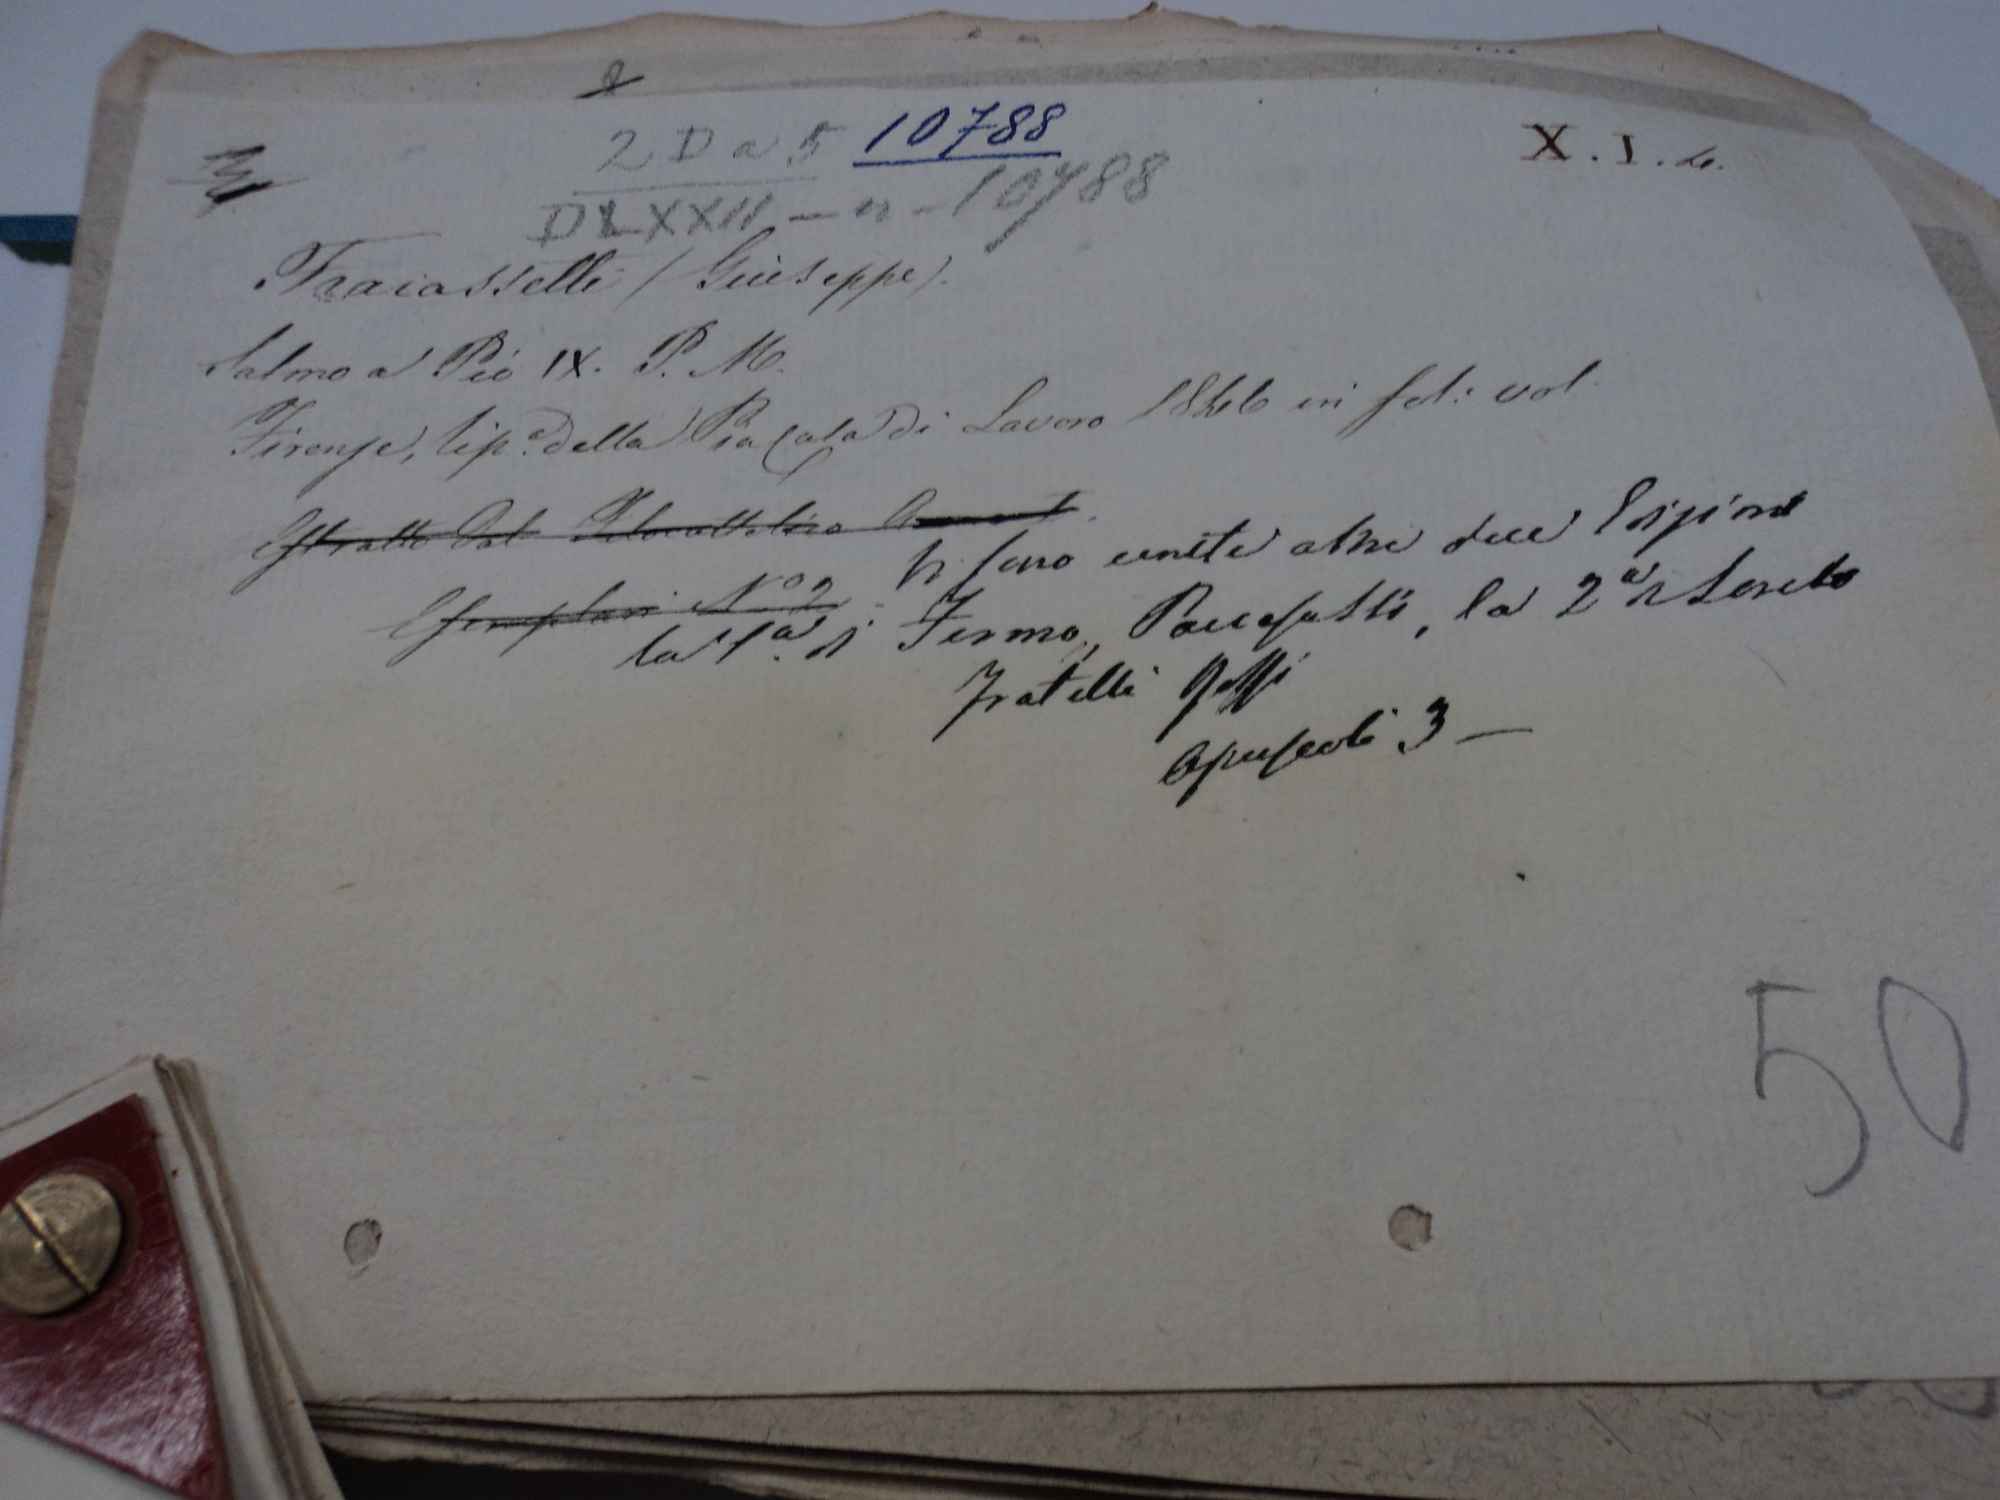 2 D a 5 10788
X. I. 4.
DLXXII - n - 10788
(Giuseppe).
Salmo a Pio IX. P. M.
Firenze, tip.a della Pia Casa di Lavoro 1846 in fol: vol.
Estratto dal
Esemplari N.o 2. Vi sono unite altre due Edizioni
la 1a. di Fermo, Paccasassi, la 2a di Loreto
Fratelli Rossi
Opuscoli 3 —
50